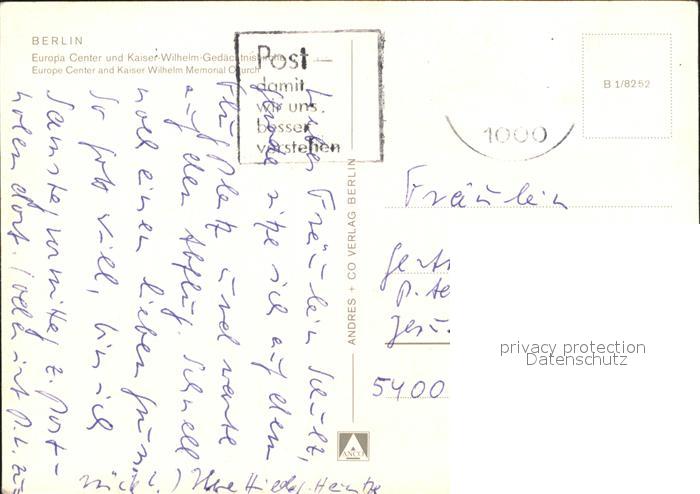 BERLIN
Europa Center und Kaiser-Wilhelm-Gedächtniskirche
Europe Center and Kaiser Wilhelm Memorial Church
Post –
damit
wir uns
besser
verstehen
1000
B 1/8252
ANDRES + CO VERLAG BERLIN
ANCO
Liebes Fräulein Schulz,
gerade sitze ich auf dem
Flugplatz und warte
auf den Abflug. Schnell
noch einen lieben Gruß.
So Gott will, bin ich
Samstag vormittag z. Post-
holen dort.
Ihre
Fräulein
5400
privacy protection
Datenschutz